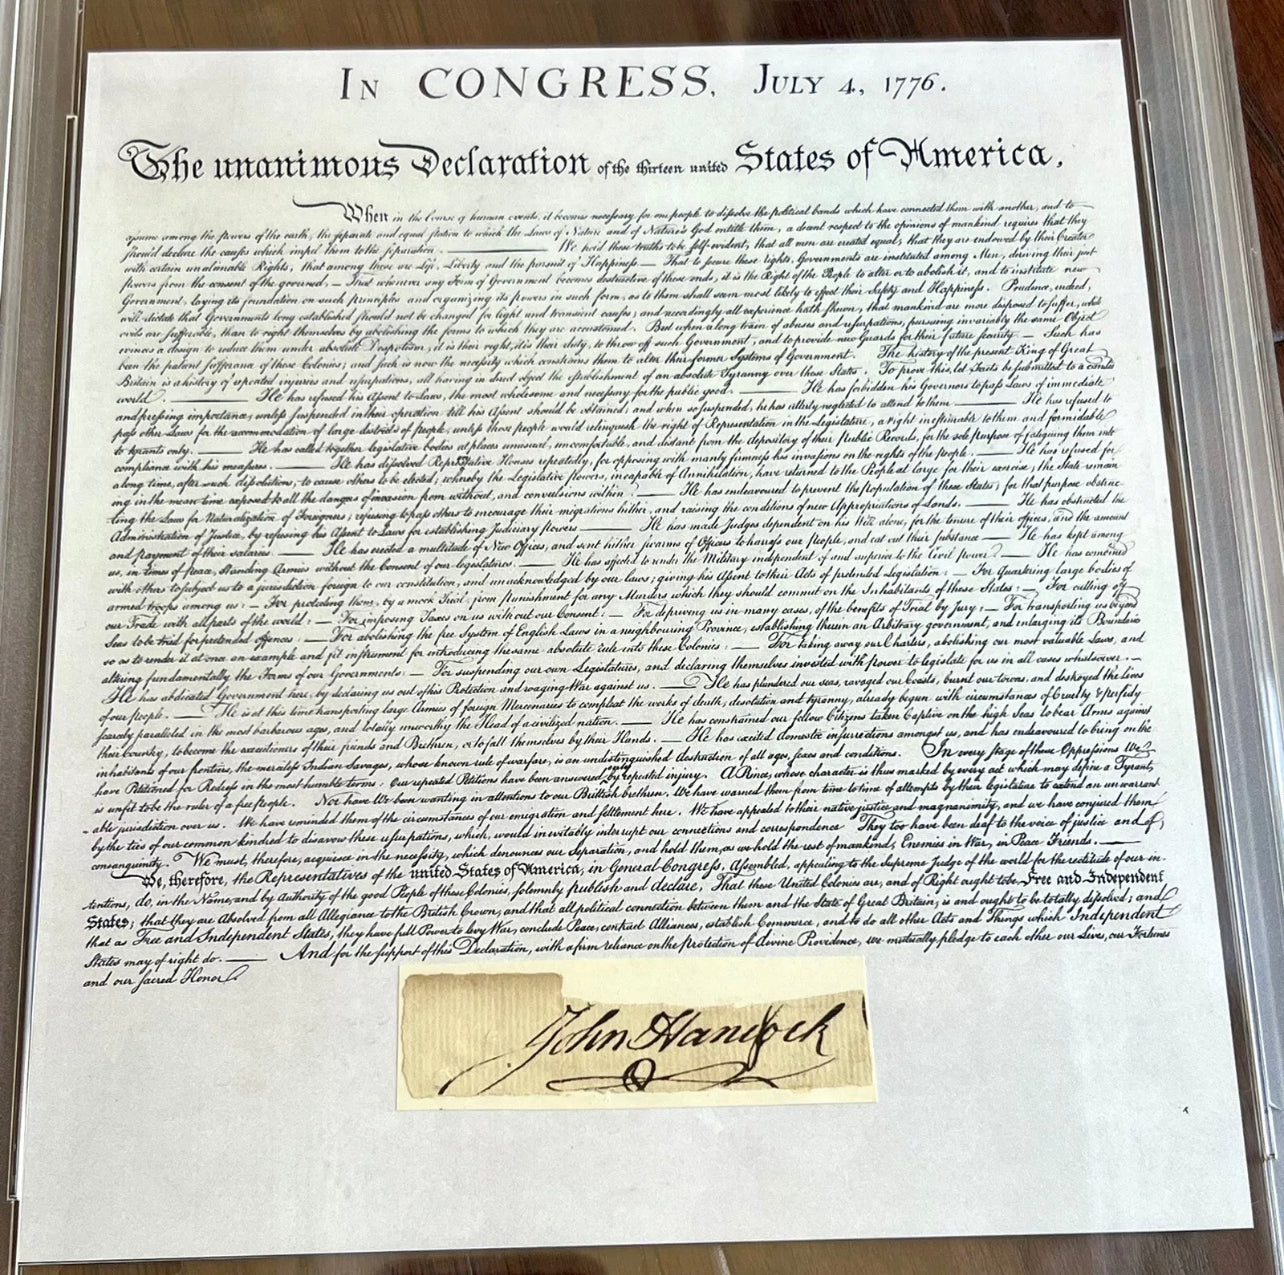 In CONGRESS, July 4, 1776.
The unanimous Declaration of the thirteen united States of America,
When in the Course of human events, it becomes necessary for one people to dissolve the political bands which have connected them with another, and to
assume among the powers of the earth, the separate and equal station to which the Laws of Nature and of Nature's God entitle them, a decent respect to the opinions of mankind requires that they
should declare the causes which impel them to the separation. ——— We hold these truths to be self-evident, that all men are created equal, that they are endowed by their Creator
with certain unalienable Rights, that among these are Life, Liberty and the pursuit of Happiness.— That to secure these rights, Governments are instituted among Men, deriving their just
powers from the consent of the governed, — That whenever any Form of Government becomes destructive of these ends, it is the Right of the People to alter or to abolish it, and to institute new
Government, laying its foundation on such principles and organizing its powers in such form, as to them shall seem most likely to effect their Safety and Happiness. Prudence, indeed,
will dictate that Governments long established should not be changed for light and transient causes; and accordingly all experience hath shewn, that mankind are more disposed to suffer, while
evils are sufferable, than to right themselves by abolishing the forms to which they are accustomed. But when a long train of abuses and usurpations, pursuing invariably the same Object
evinces a design to reduce them under absolute Despotism, it is their right, it is their duty, to throw off such Government, and to provide new Guards for their future security.— Such has
been the patient sufferance of these Colonies; and such is now the necessity which constrains them to alter their former Systems of Government. The history of the present King of Great
Britain is a history of repeated injuries and usurpations, all having in direct object the establishment of an absolute Tyranny over these States. To prove this, let Facts be submitted to a candid
world. ——— He has refused his Assent to Laws, the most wholesome and necessary for the public good. ——— He has forbidden his Governors to pass Laws of immediate
and pressing importance, unless suspended in their operation till his Assent should be obtained; and when so suspended, he has utterly neglected to attend to them. ——— He has refused to
pass other Laws for the accommodation of large districts of people, unless those people would relinquish the right of Representation in the Legislature, a right inestimable to them and formidable
to tyrants only. ——— He has called together legislative bodies at places unusual, uncomfortable, and distant from the depository of their Public Records, for the sole purpose of fatiguing them into
compliance with his measures. ——— He has dissolved Representative Houses repeatedly, for opposing with manly firmness his invasions on the rights of the people. ——— He has refused for
a long time, after such dissolutions, to cause others to be elected; whereby the Legislative powers, incapable of Annihilation, have returned to the People at large for their exercise; the State remain
ing in the mean time exposed to all the dangers of invasion from without, and convulsions within. ——— He has endeavoured to prevent the population of these States; for that purpose obstruc-
ting the Laws for Naturalization of Foreigners; refusing to pass others to encourage their migrations hither, and raising the conditions of new Appropriations of Lands. ——— He has obstructed the
Administration of Justice, by refusing his Assent to Laws for establishing Judiciary powers. ——— He has made Judges dependent on his Will alone, for the tenure of their offices, and the amount
and payment of their salaries. ——— He has erected a multitude of New Offices, and sent hither swarms of Officers to harrass our people, and eat out their substance. ——— He has kept among
us, in times of peace, Standing Armies without the Consent of our legislatures. ——— He has affected to render the Military independent of and superior to the Civil power. ——— He has combined
with others to subject us to a jurisdiction foreign to our constitution, and unacknowledged by our laws; giving his Assent to their Acts of pretended Legislation: — For Quartering large bodies of
armed troops among us: — For protecting them, by a mock Trial, from punishment for any Murders which they should commit on the Inhabitants of these States: — For cutting off
our Trade with all parts of the world: — For imposing Taxes on us without our Consent: — For depriving us in many cases, of the benefits of Trial by Jury: — For transporting us beyond
Seas to be tried for pretended offences: — For abolishing the free System of English Laws in a neighbouring Province, establishing therein an Arbitrary government, and enlarging its Boundaries
so as to render it at once an example and fit instrument for introducing the same absolute rule into these Colonies: — For taking away our Charters, abolishing our most valuable Laws, and
altering fundamentally the Forms of our Governments: — For suspending our own Legislatures, and declaring themselves invested with power to legislate for us in all cases whatsoever.—
He has abdicated Government here, by declaring us out of his Protection and waging War against us. ——— He has plundered our seas, ravaged our Coasts, burnt our towns, and destroyed the lives
of our people. ——— He is at this time transporting large Armies of foreign Mercenaries to compleat the works of death, desolation and tyranny, already begun with circumstances of Cruelty & perfidy
scarcely paralleled in the most barbarous ages, and totally unworthy the Head of a civilized nation. ——— He has constrained our fellow Citizens taken Captive on the high Seas to bear Arms against
their Country, to become the executioners of their friends and Brethren, or to fall themselves by their Hands. ——— He has excited domestic insurrections amongst us, and has endeavoured to bring on the
inhabitants of our frontiers, the merciless Indian Savages, whose known rule of warfare, is an undistinguished destruction of all ages, sexes and conditions. In every stage of these Oppressions We
have Petitioned for Redress in the most humble terms: Our repeated Petitions have been answered only by repeated injury. A Prince, whose character is thus marked by every act which may define a Tyrant,
is unfit to be the ruler of a free people. Nor have We been wanting in attentions to our Brittish brethren. We have warned them from time to time of attempts by their legislature to extend an unwarrant
able jurisdiction over us. We have reminded them of the circumstances of our emigration and settlement here. We have appealed to their native justice and magnanimity, and we have conjured them
by the ties of our common kindred to disavow these usurpations, which, would inevitably interrupt our connections and correspondence. They too have been deaf to the voice of justice and of
consanguinity. We must, therefore, acquiesce in the necessity, which denounces our Separation, and hold them, as we hold the rest of mankind, Enemies in War, in Peace Friends. ———
We, therefore, the Representatives of the united States of America, in General Congress, Assembled, appealing to the Supreme Judge of the world for the rectitude of our in-
tentions, do, in the Name, and by Authority of the good People of these Colonies, solemnly publish and declare, That these United Colonies are, and of Right ought to be Free and Independent
States; that they are Absolved from all Allegiance to the British Crown, and that all political connection between them and the State of Great Britain, is and ought to be totally dissolved; and
that as Free and Independent States, they have full Power to levy War, conclude Peace, contract Alliances, establish Commerce, and to do all other Acts and Things which Independent
States may of right do. ——— And for the support of this Declaration, with a firm reliance on the protection of divine Providence, we mutually pledge to each other our Lives, our Fortunes
and our sacred Honor.
John Hancock